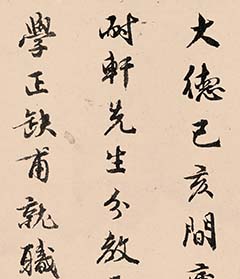 大德己亥間
耐軒先生分教
學正缺甫就職